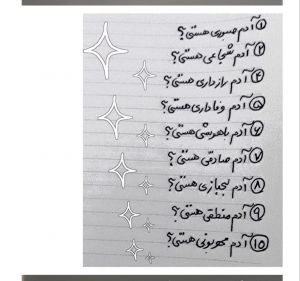 ۱ آدم صبوری هستی؟
۲ آدم شجاعی هستی؟
۴ آدم رازداری هستی؟
۵ آدم وفاداری هستی؟
۶ آدم باهوشی هستی؟
۷ آدم صادقی هستی؟
۸ آدم لجبازی هستی؟
۹ آدم منطقی هستی؟
۱۰ آدم مهربونی هستی؟